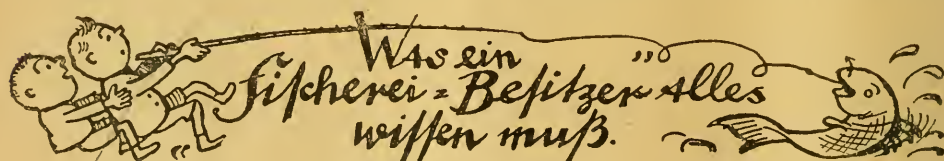 Was ein
Fischerei=Besitzer "Alles
wissen muß.